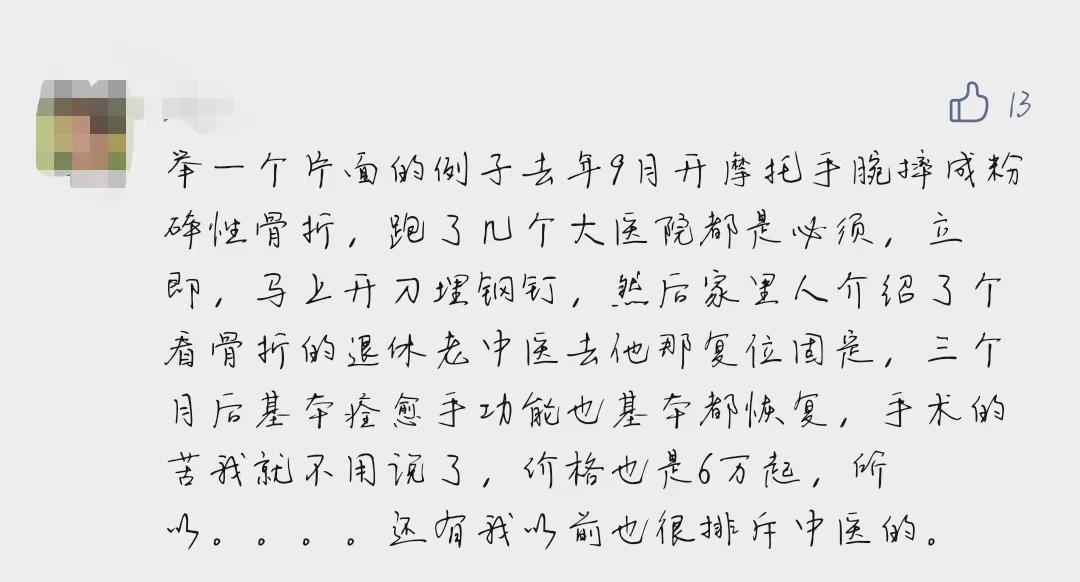 13
举一个片面的例子去年9月开摩托手腕摔成粉
碎性骨折，跑了几个大医院都是必须，立
即，马上开刀埋钢钉，然后家里人介绍了个
看骨折的退休老中医去他那复位固定，三个
月后基本痊愈手功能也基本都恢复，手术的
苦我就不用说了，价格也是6万起，所
以。。。。还有我以前也很排斥中医的。